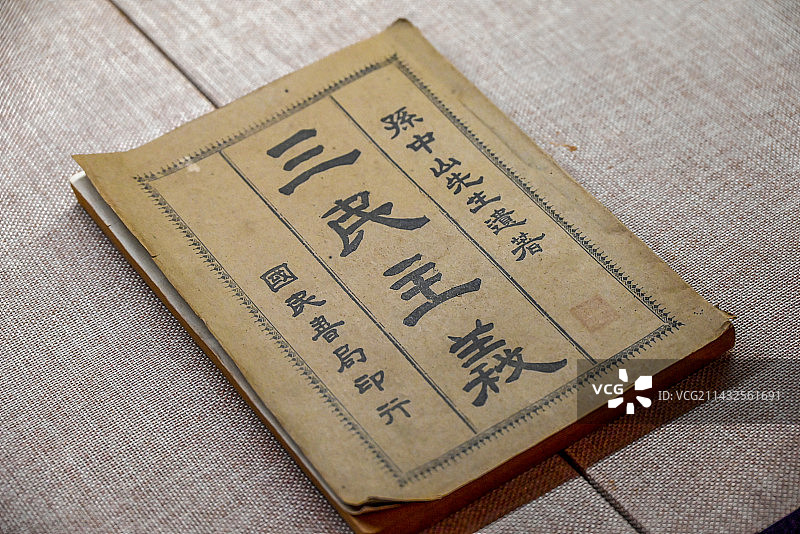 孫中山先生遺著
三民主義
國民書局印行
VCG
ID: VCG211432561691